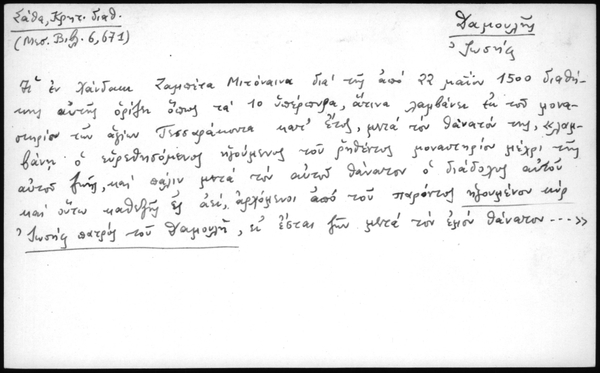 Σάθα, Κρητ. διαθ.
(Μεσ. Βιβλ. 6, 671)
Δαμουλῆς
Ἰωσήφ
Ἡ ἐν Χάνδακι Ζαμπέτα Μιτόναινα διὰ τῆς ἀπό 22 μαΐου 1500 διαθή-
κης αὐτῆς ὁρίζει ὅπως τά 10 ὑπέρπυρα, ἅτινα λαμβάνει ἐκ τοῦ μονα-
στηρίου τῶν ἁγίων Τεσσαράκοντα κατ' ἔτος, μετά τόν θάνατόν της, λαμ-
βάνῃ ὁ εὑρεθησόμενος ἡγούμενος τοῦ ῥηθέντος μοναστηρίου μέχρι τῆς
αὐτοῦ ζωῆς, καί πάλιν μετά τόν αὐτοῦ θάνατον ὁ διάδοχος αὐτοῦ
καί οὕτω καθεξῆς ἐς ἀεί, ἀρχόμενοι ἀπό τοῦ παρόντος ἡγουμένου κύρ
Ἰωσήφ πατρός τοῦ Δαμουλῆ, εἰ ἔσται ζῶν μετά τόν ἐμόν θάνατον --->>